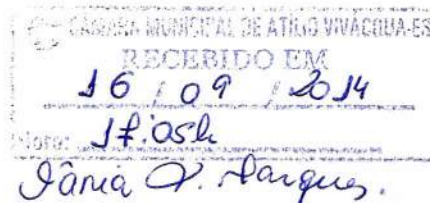 CÂMARA MUNICIPAL DE ATILIO VIVÁCQUA-ES
RECEBIDO EM
16 / 09 / 2014
Hora: 17:05h
Tânia Marques.